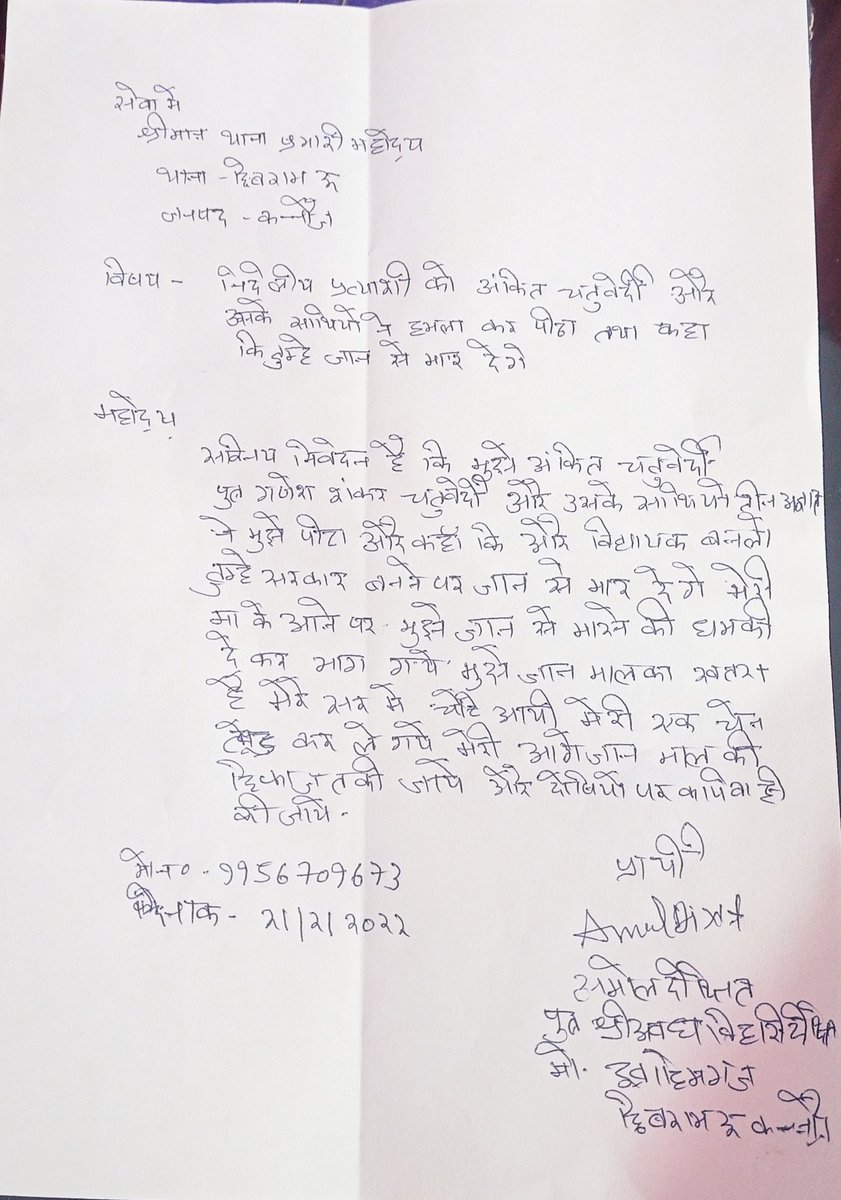 सेवा में
श्रीमान थाना प्रभारी महोदय
थाना - छिबरामऊ
जनपद - कन्नौज
विषय - निर्दलीय प्रत्याशी को अंकित चतुर्वेदी और
उसके साथियों ने हमला कर पीटा तथा कहा
कि तुम्हे जान से मार देंगे
महोदय
सविनय निवेदन है कि मुझे अंकित चतुर्वेदी
पुत्र गणेश शंकर चतुर्वेदी और उसके साथियों तीन अज्ञात
ने मुझे पीटा और कहा कि और विधायक बनलो
तुम्हे सरकार बनने पर जान से मार देगे मेरी
मा के आने पर मुझे जान से मारने की धमकी
दे कर भाग गये मुझे जान माल का खतरा
है मेरे सर मे चोट आयी मेरी एक चैन
कर ले गये मेरी आगे जान माल की
हिफाजत की जाये और दोषियों पर कार्यवाही
की जाये -
मो०न० - 9956709673
दिनांक - 21/2/2022
प्रार्थी
Amol Dixit
अमोल दीक्षित
पुत्र श्री अवध बिहारी दीक्षित
मो. इब्राहिमगंज
छिबरामऊ कन्नौज